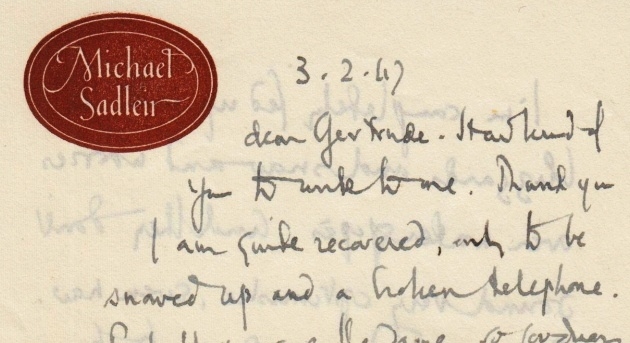 Michael
Sadleir
3.2.47
dear Gertrude. How kind of
you to write to me. Thank you
I am quite recovered, only to be
snowed up and a broken telephone.